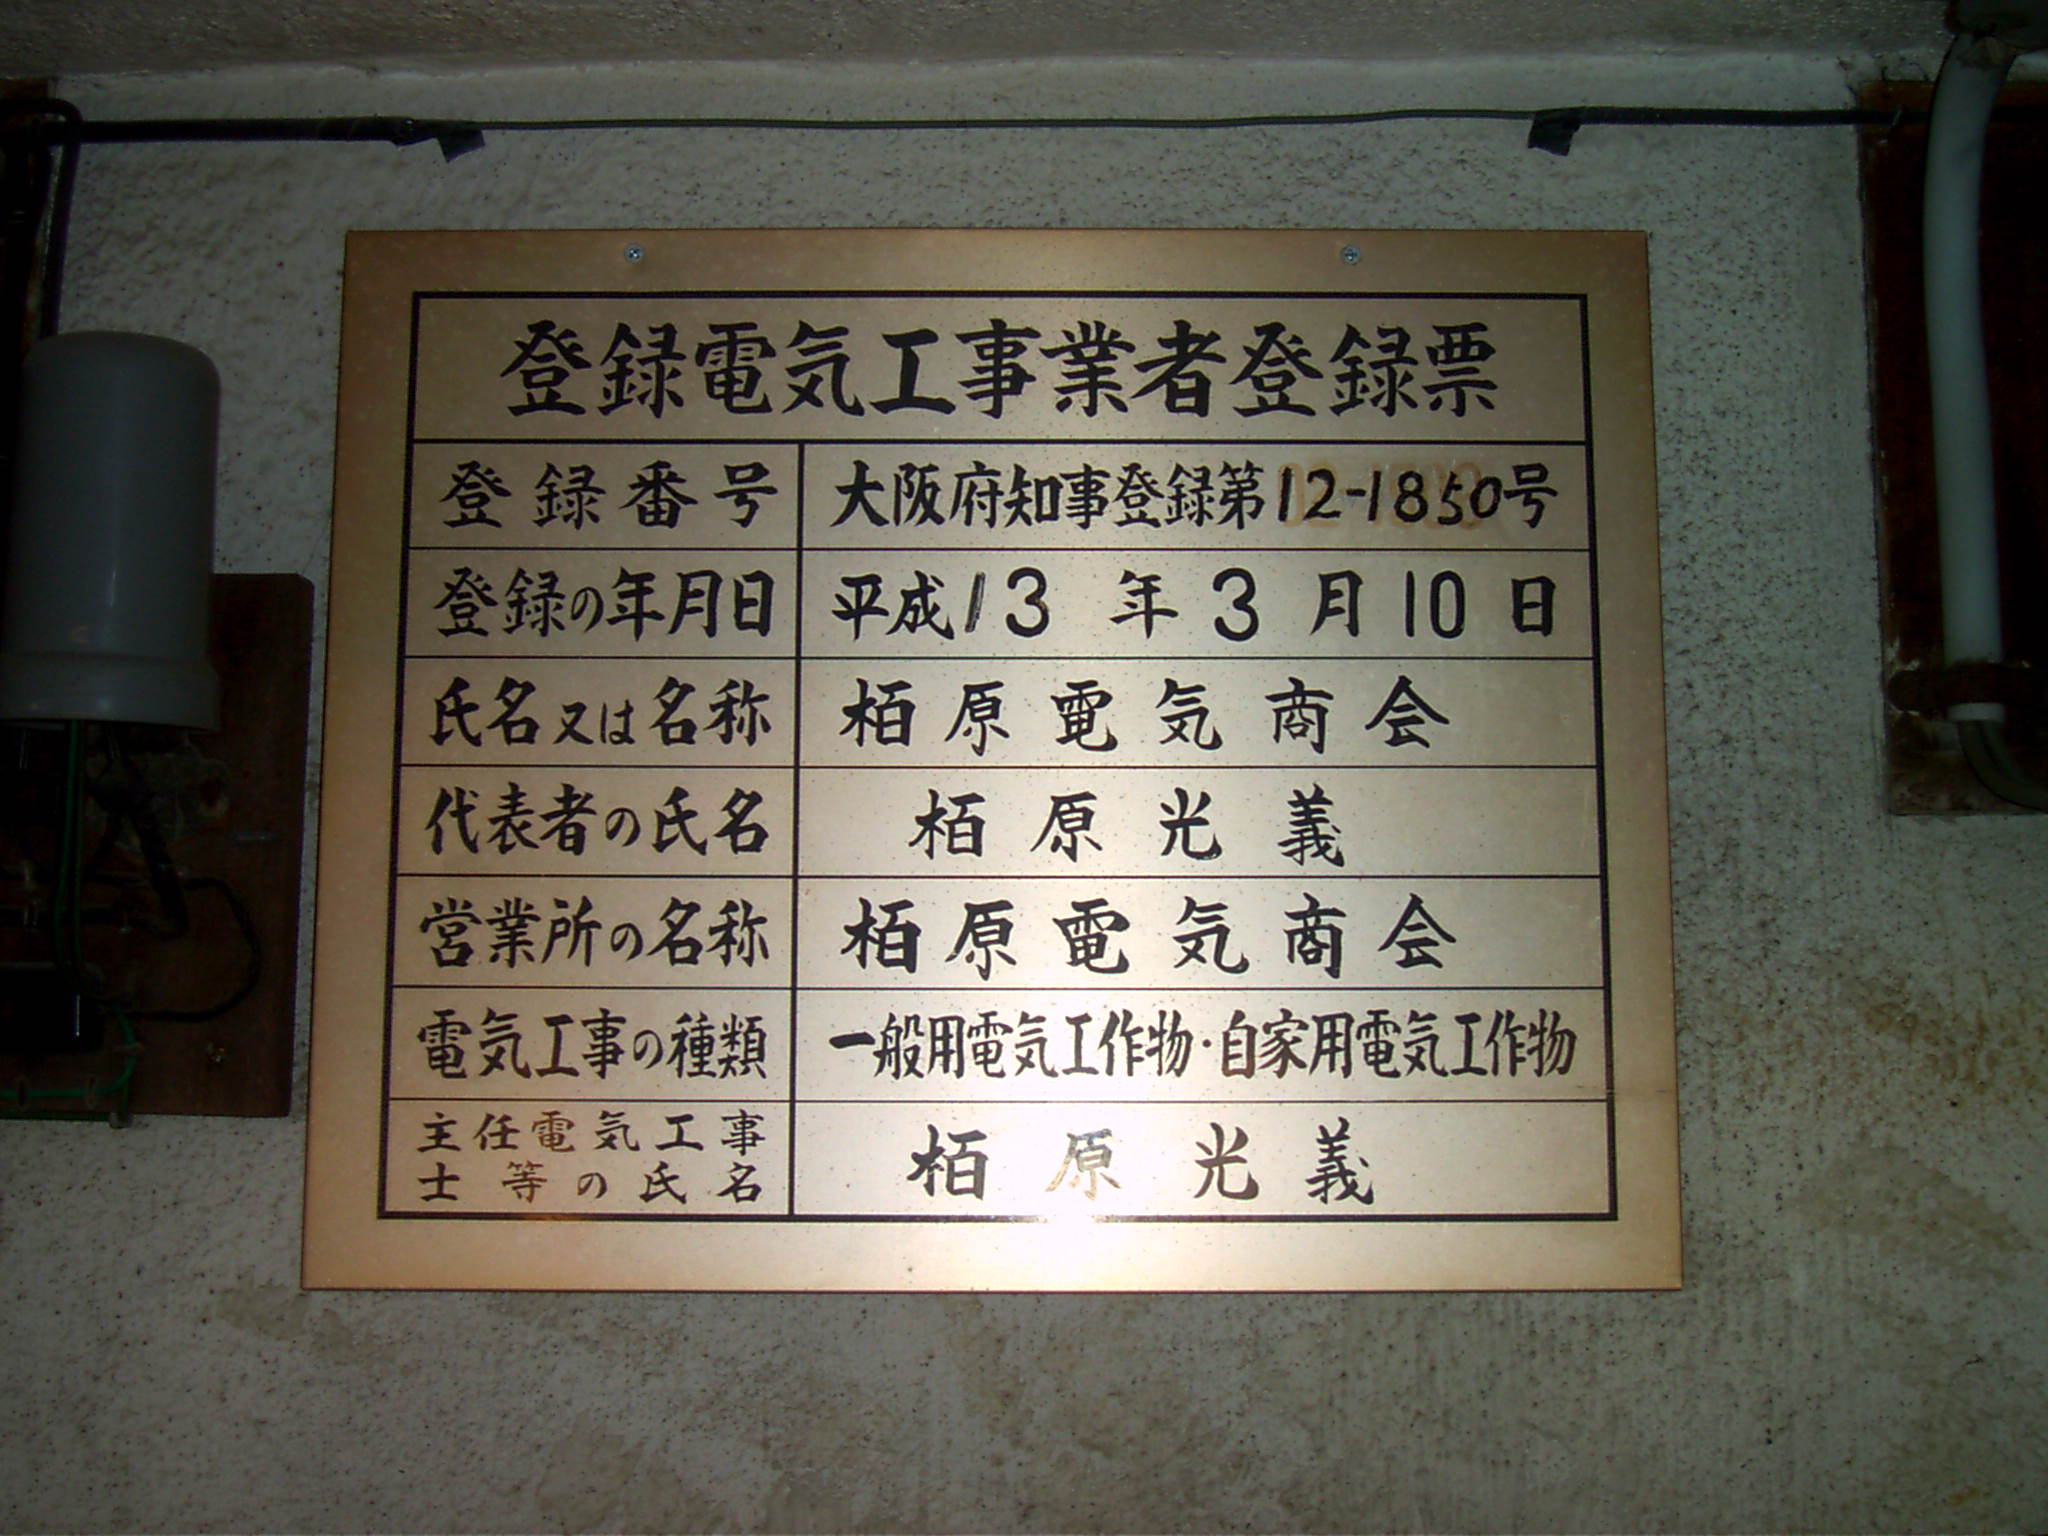 登録電気工事業者登録票
登録番号 大阪府知事登録第12-1850号
登録の年月日 平成13年3月10日
氏名又は名称 栢原電気商会
代表者の氏名 栢原光義
営業所の名称 栢原電気商会
電気工事の種類 一般用電気工作物・自家用電気工作物
主任電気工事
士等の氏名 栢原光義